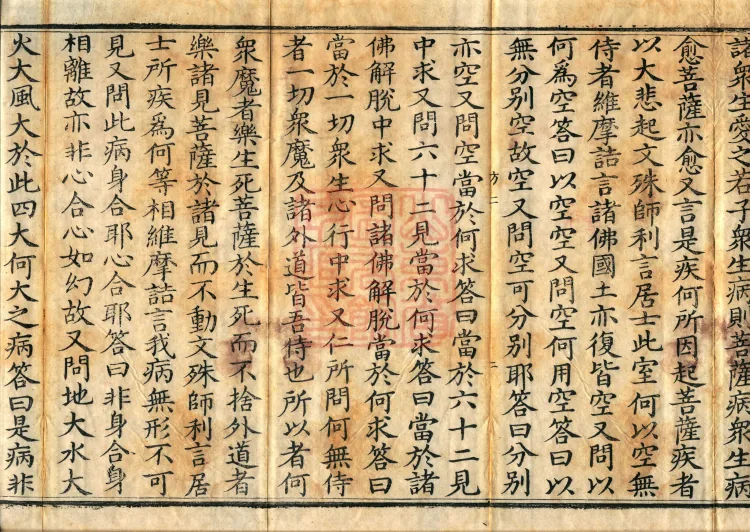 諸衆生愛之若子衆生病則菩薩病衆生病
愈菩薩亦愈又言是疾何所因起菩薩疾者
以大悲起文殊師利言居士此室何以空無
侍者維摩詰言諸佛國土亦復皆空又問以
何爲空答曰以空空又問空何用空答曰以
無分別空故空又問空可分別耶答曰分別
亦空又問空當於何求答曰當於六十二見
中求又問六十二見當於何求答曰當於諸
佛解脫中求又問諸佛解脫當於何求答曰
當於一切衆生心行中求又仁所問何無侍
者一切衆魔及諸外道皆吾侍也所以者何
衆魔者樂生死菩薩於生死而不捨外道者
樂諸見菩薩於諸見而不動文殊師利言居
士所疾爲何等相維摩詰言我病無形不可
見又問此病身合耶心合耶答曰非身合身
相離故亦非心合心如幻故又問地大水大
火大風大於此四大何大之病答曰是病非